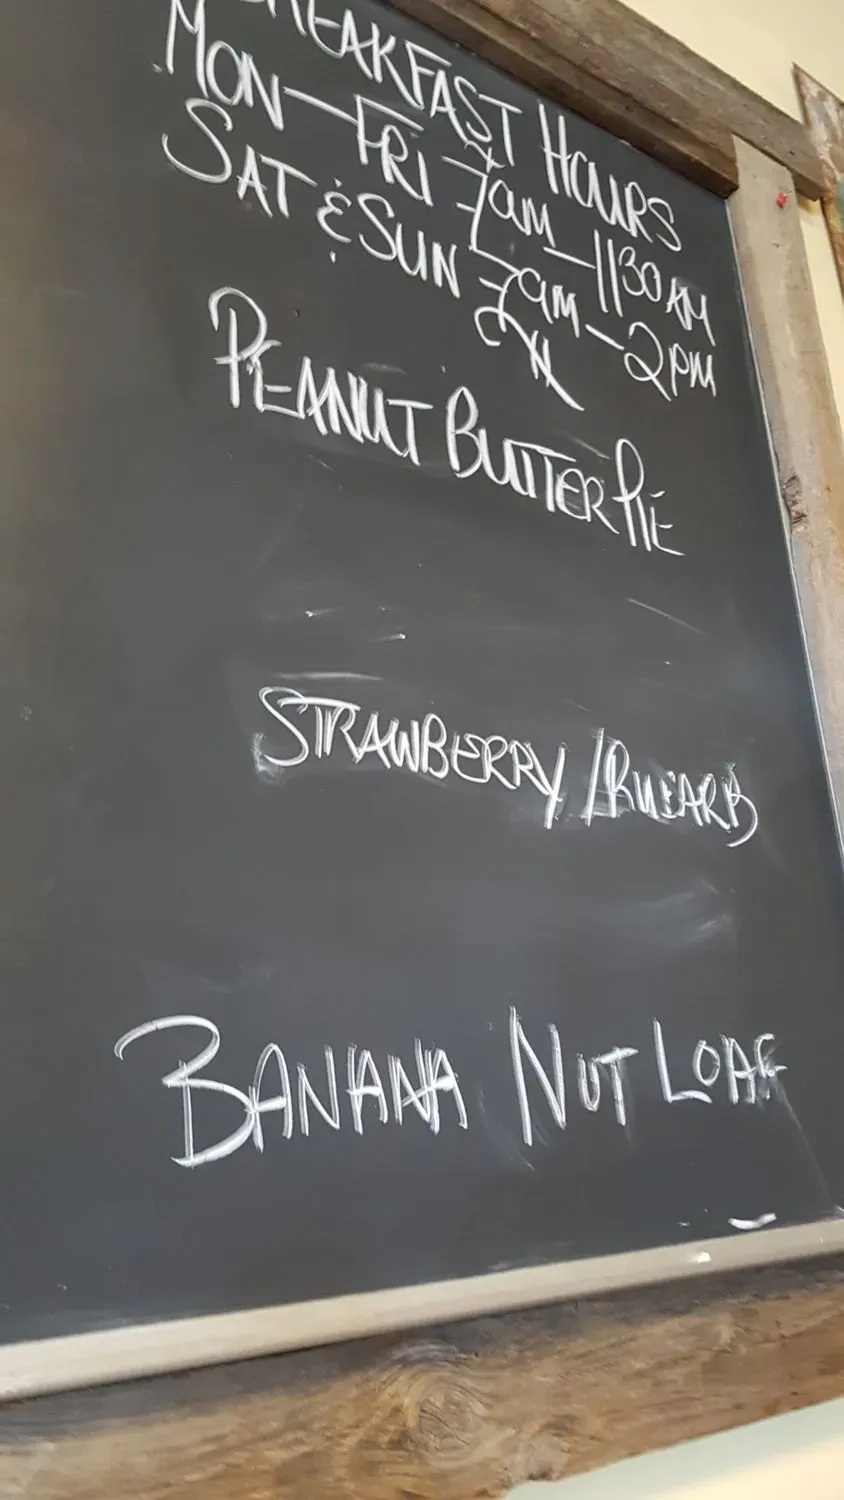 BREAKFAST HOURS
MON—FRI 7am—1130AM
SAT & SUN 7am—2PM
PEANUT BUTTER PIE
STRAWBERRY/RUBARB
BANANA NUT LOAF